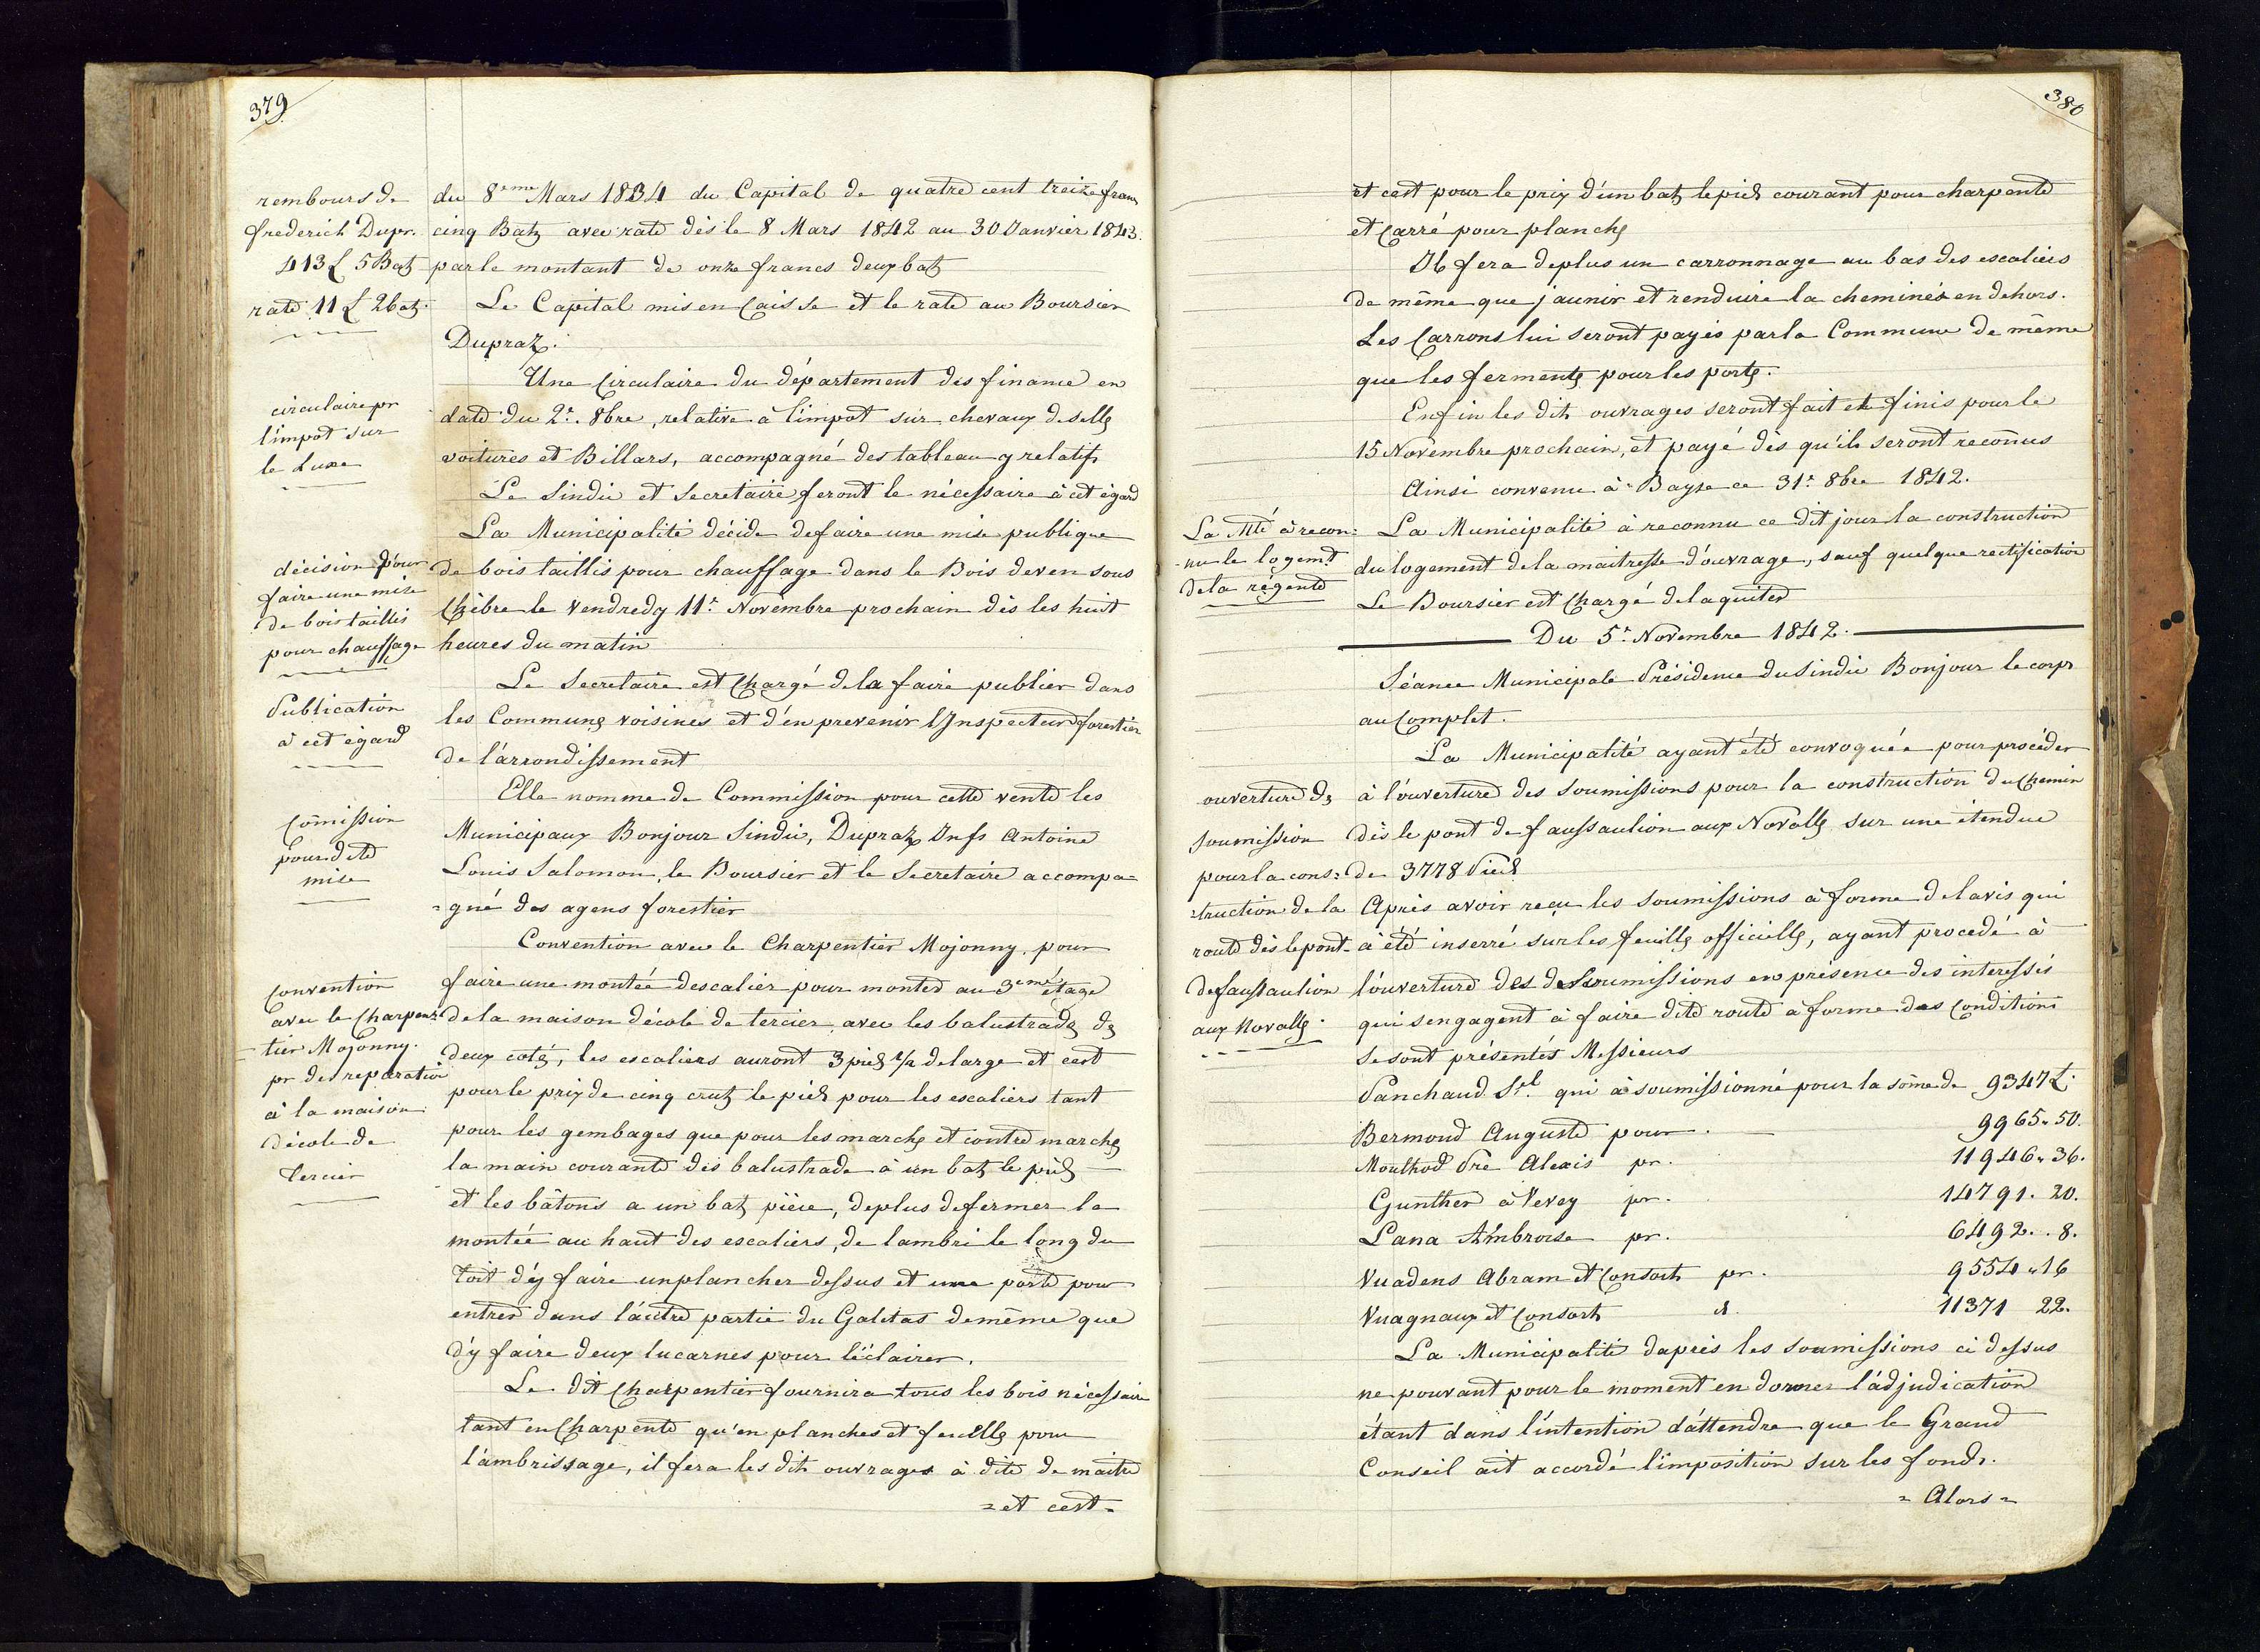 379
rembours de
frederich Dupr.
413 £ 5 Batz
rate 11 £ 2 batz.
circulaire pr
l'impot sur
le Luxe
décision pour
faire une mise
de bois taillis
pour chauffage
Publication
à cet égard
Comission
pour dite
mise
Convention
avec le Charpen=
=tier Mojonny.
pr des reparation
à la maison
décole de
Tercier
du 8eme Mars 1834 du Capital de quatre cent treize francs
cinq Batz avec rate dès le 8 Mars 1842 au 30 Janvier 1843.
par le montant de onze francs deux batz
Le Capital mis en Caisse et le rate au Boursier
Dupraz.
Une Circulaire du département des finance en
date du 2e. 8bre, relative à l'impot sur chevaux de selle
voitures et Billars, accompagné des tableaux relatifs
Le Sindic et Secretaire feront le nécessaire à cet égard
La Municipalité décide de faire une mise publique
de bois taillis pour chauffage dans le Bois deven sous
Chèbre le Vendredy 11e. Novembre prochain dès les huit
heures du matin
Le Secretaire est Chargé de la faire publier dans
les Communes voisines et d'en prevenir l'Inspecteur forestier
de l'arrondissement
Elle nomme de Commission pour cette vente les
Municipaux Bonjour Sindic, Dupraz Insp Antoine
Louis Salomon, le Boursier et le Secretaire accompa=
=gné des agens forestier
Convention avec le Charpentier Mojonny pour
faire une montée descalier pour monter au 3eme étage
de la maison décole de tercier, avec les balustrades des
deux cotés, les escaliers auront 3 pieds 1/2 de large et cest
pour le prix de cinq crutz le pied pour les escaliers tant
pour les gembages que pour les marches et contre marches
la main courante des balustrade à un batz le pied
et les bâtons a un batz pièce, deplus de fermer la
montée au haut des escaliers, de lambri le long du
toit d'y faire un plancher dessus et une porte pour
entrer dans l'autre partie du Galetas de même que
d'y faire deux lucarnes pour l'éclairer.
Le dit Charpentier fournira tous les bois nécessaire
tant en Charpente qu'en planches et feuilles pour
l'ambrissage, il fera les dits ouvrages à dite de maitre
= et cest =
380
La Mté à recon=
=nu le logemt
de la régente
ouverture des
soumission
pour la cons=
=truction de la
route dès le pont
de faussaulion
aux Novalles.
et cest pour le prix d'un batz le pied courant pour charpente
et Carré pour planches
Il fera deplus un carronnage au bas des escaliers
de même que jaunir et renduire la cheminée en dehors.
Les Carrons lui seront payés par la Commune de même
que les fermentes pour les portes.
Enfin les dits ouvrages seront fait et finis pour le
15 Novembre prochain, et payé dès qu'ils seront reconnus
Ainsi convenu à Bayse ce 31e. 8bre 1842.
La Municipalité à reconnu ce dit jour la construction
du logement de la maitresse d'ouvrage, sauf quelque rectification
Le Boursier est Chargé de laquiter
Du 5e. Novembre 1842.
Séance Municipale Présidence du Sindic Bonjour le corps
au Complet.
La Municipalité ayant été convoquée pour procéder
à l'ouverture des soumissions pour la construction du Chemin
dès le pont de faussaulion aux Novalles sur une étendue
de 3778 Pieds
Après avoir reçu les soumissions à forme de lavis qui
a été inserré sur les feuilles officielles, ayant procedé à
l'ouverture des de soumissions en présence des interessés
qui sengagent à faire dite route à forme des Conditions
se sont présentés Messieurs
Panchaud Sl. qui à soumissionné pour la sôme de 9347 £.
Bermond Auguste pour 9965. 50.
Mouthod Pre Alexis pr. 11946. 36.
Gunther à Vevey pr. 14791. 20.
Lana Ambroise pr. 6492. 8.
Vuadens Abram et Consorts pr. 9554. 16
Vuagnaux et Consorts d. 11371 22.
La Municipalité daprès les soumissions ci dessus
ne pouvant pour le moment en donner l'adjudication
étant dans l'intention d'attendre que le Grand
Conseil ait accordé l'imposition sur les fonds.
= Alors =